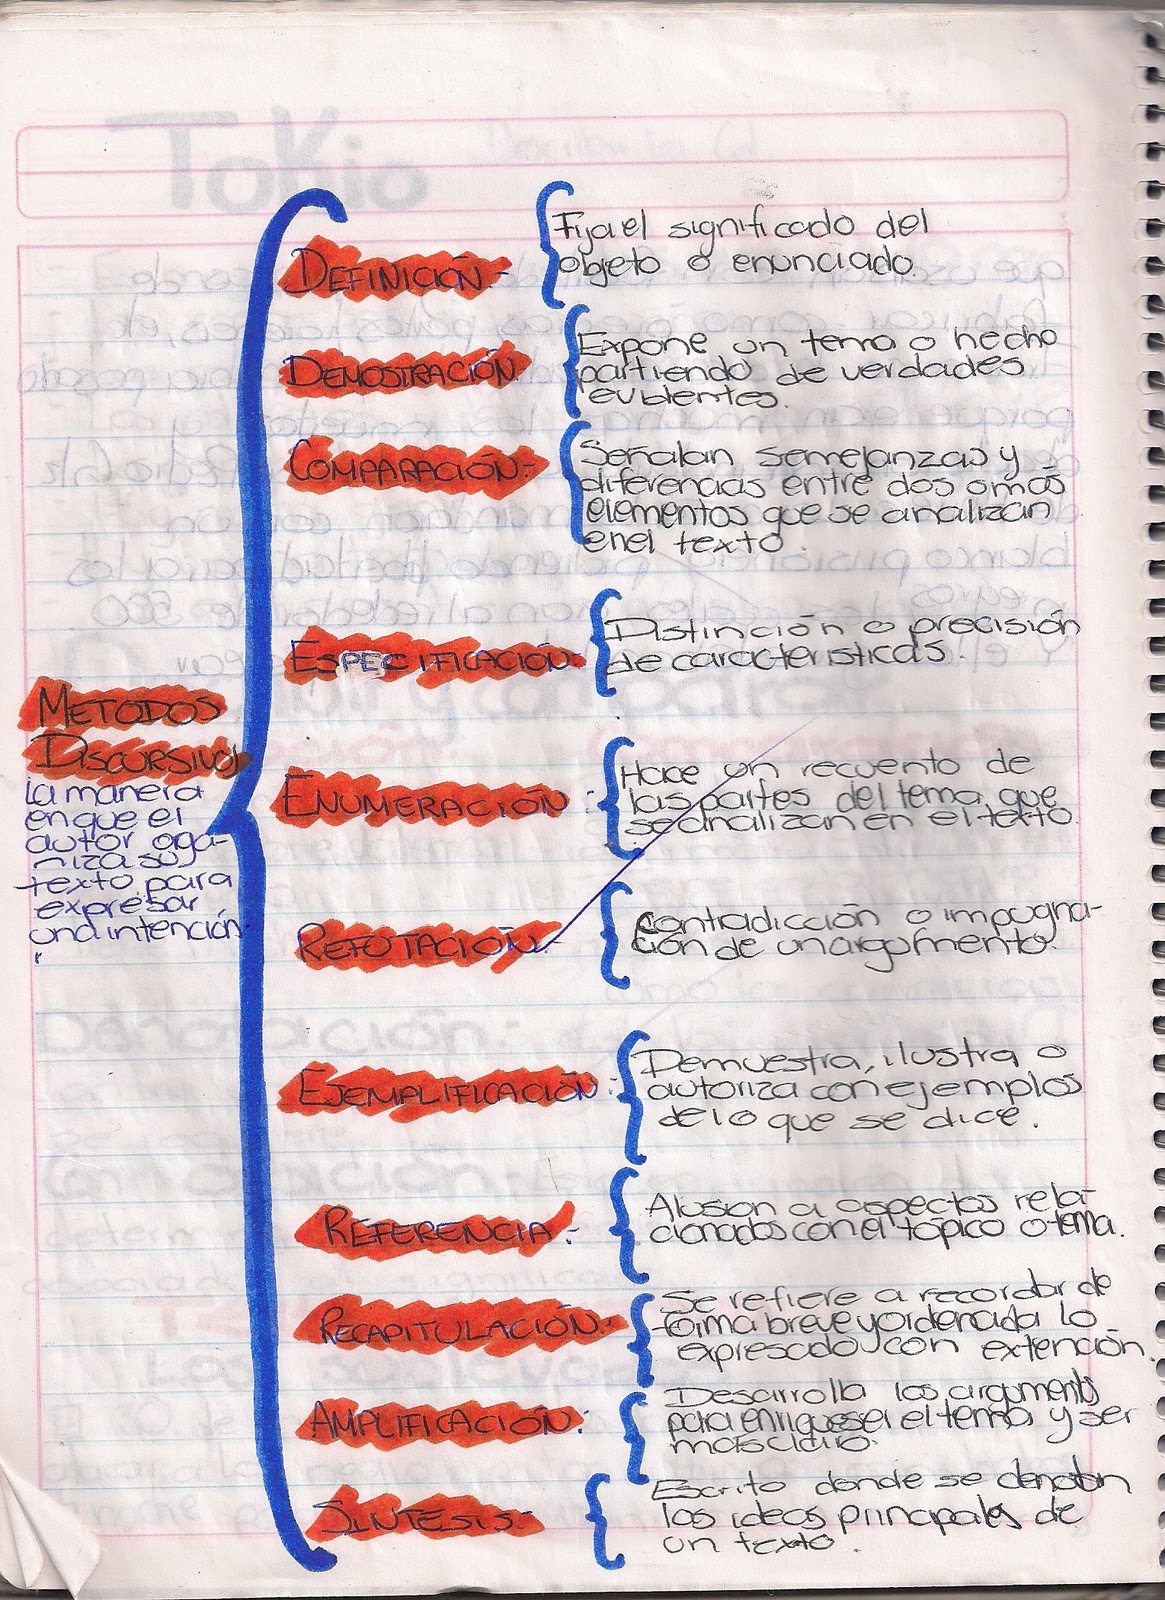 METODOS
DISCURSIVOS
la manera
en que el
autor orga-
niza su
texto para
expresar
una intención.
DEFINICIÓN.-
Fija el significado del
objeto o enunciado.
DEMOSTRACIÓN.
Expone un tema o hecho
partiendo de verdades
evidentes.
COMPARACIÓN.-
Señalan semejanzas y
diferencias entre dos o más
elementos que se analizan
en el texto.
ESPECIFICACIÓN.-
Distinción o precisión
de características.
ENUMERACIÓN:
Hace un recuento de
las partes del tema que
se analizan en el texto.
REFUTACIÓN.-
Contradicción o impugna-
ción de un argumento.
EJEMPLIFICACIÓN:
Demuestra, ilustra o
autoriza con ejemplos
de lo que se dice.
REFERENCIA.-
Alusion a aspectos rela-
cionados con el tópico o tema.
RECAPITULACIÓN.-
Se refiere a recordar de
forma breve y ordenada lo
expresado con extención.
AMPLIFICACIÓN:
Desarrolla los argumentos
para enriqueser el tema y ser
mas claro.
SINTESIS.-
Escrito donde se denotan
las ideas principales de
un texto.